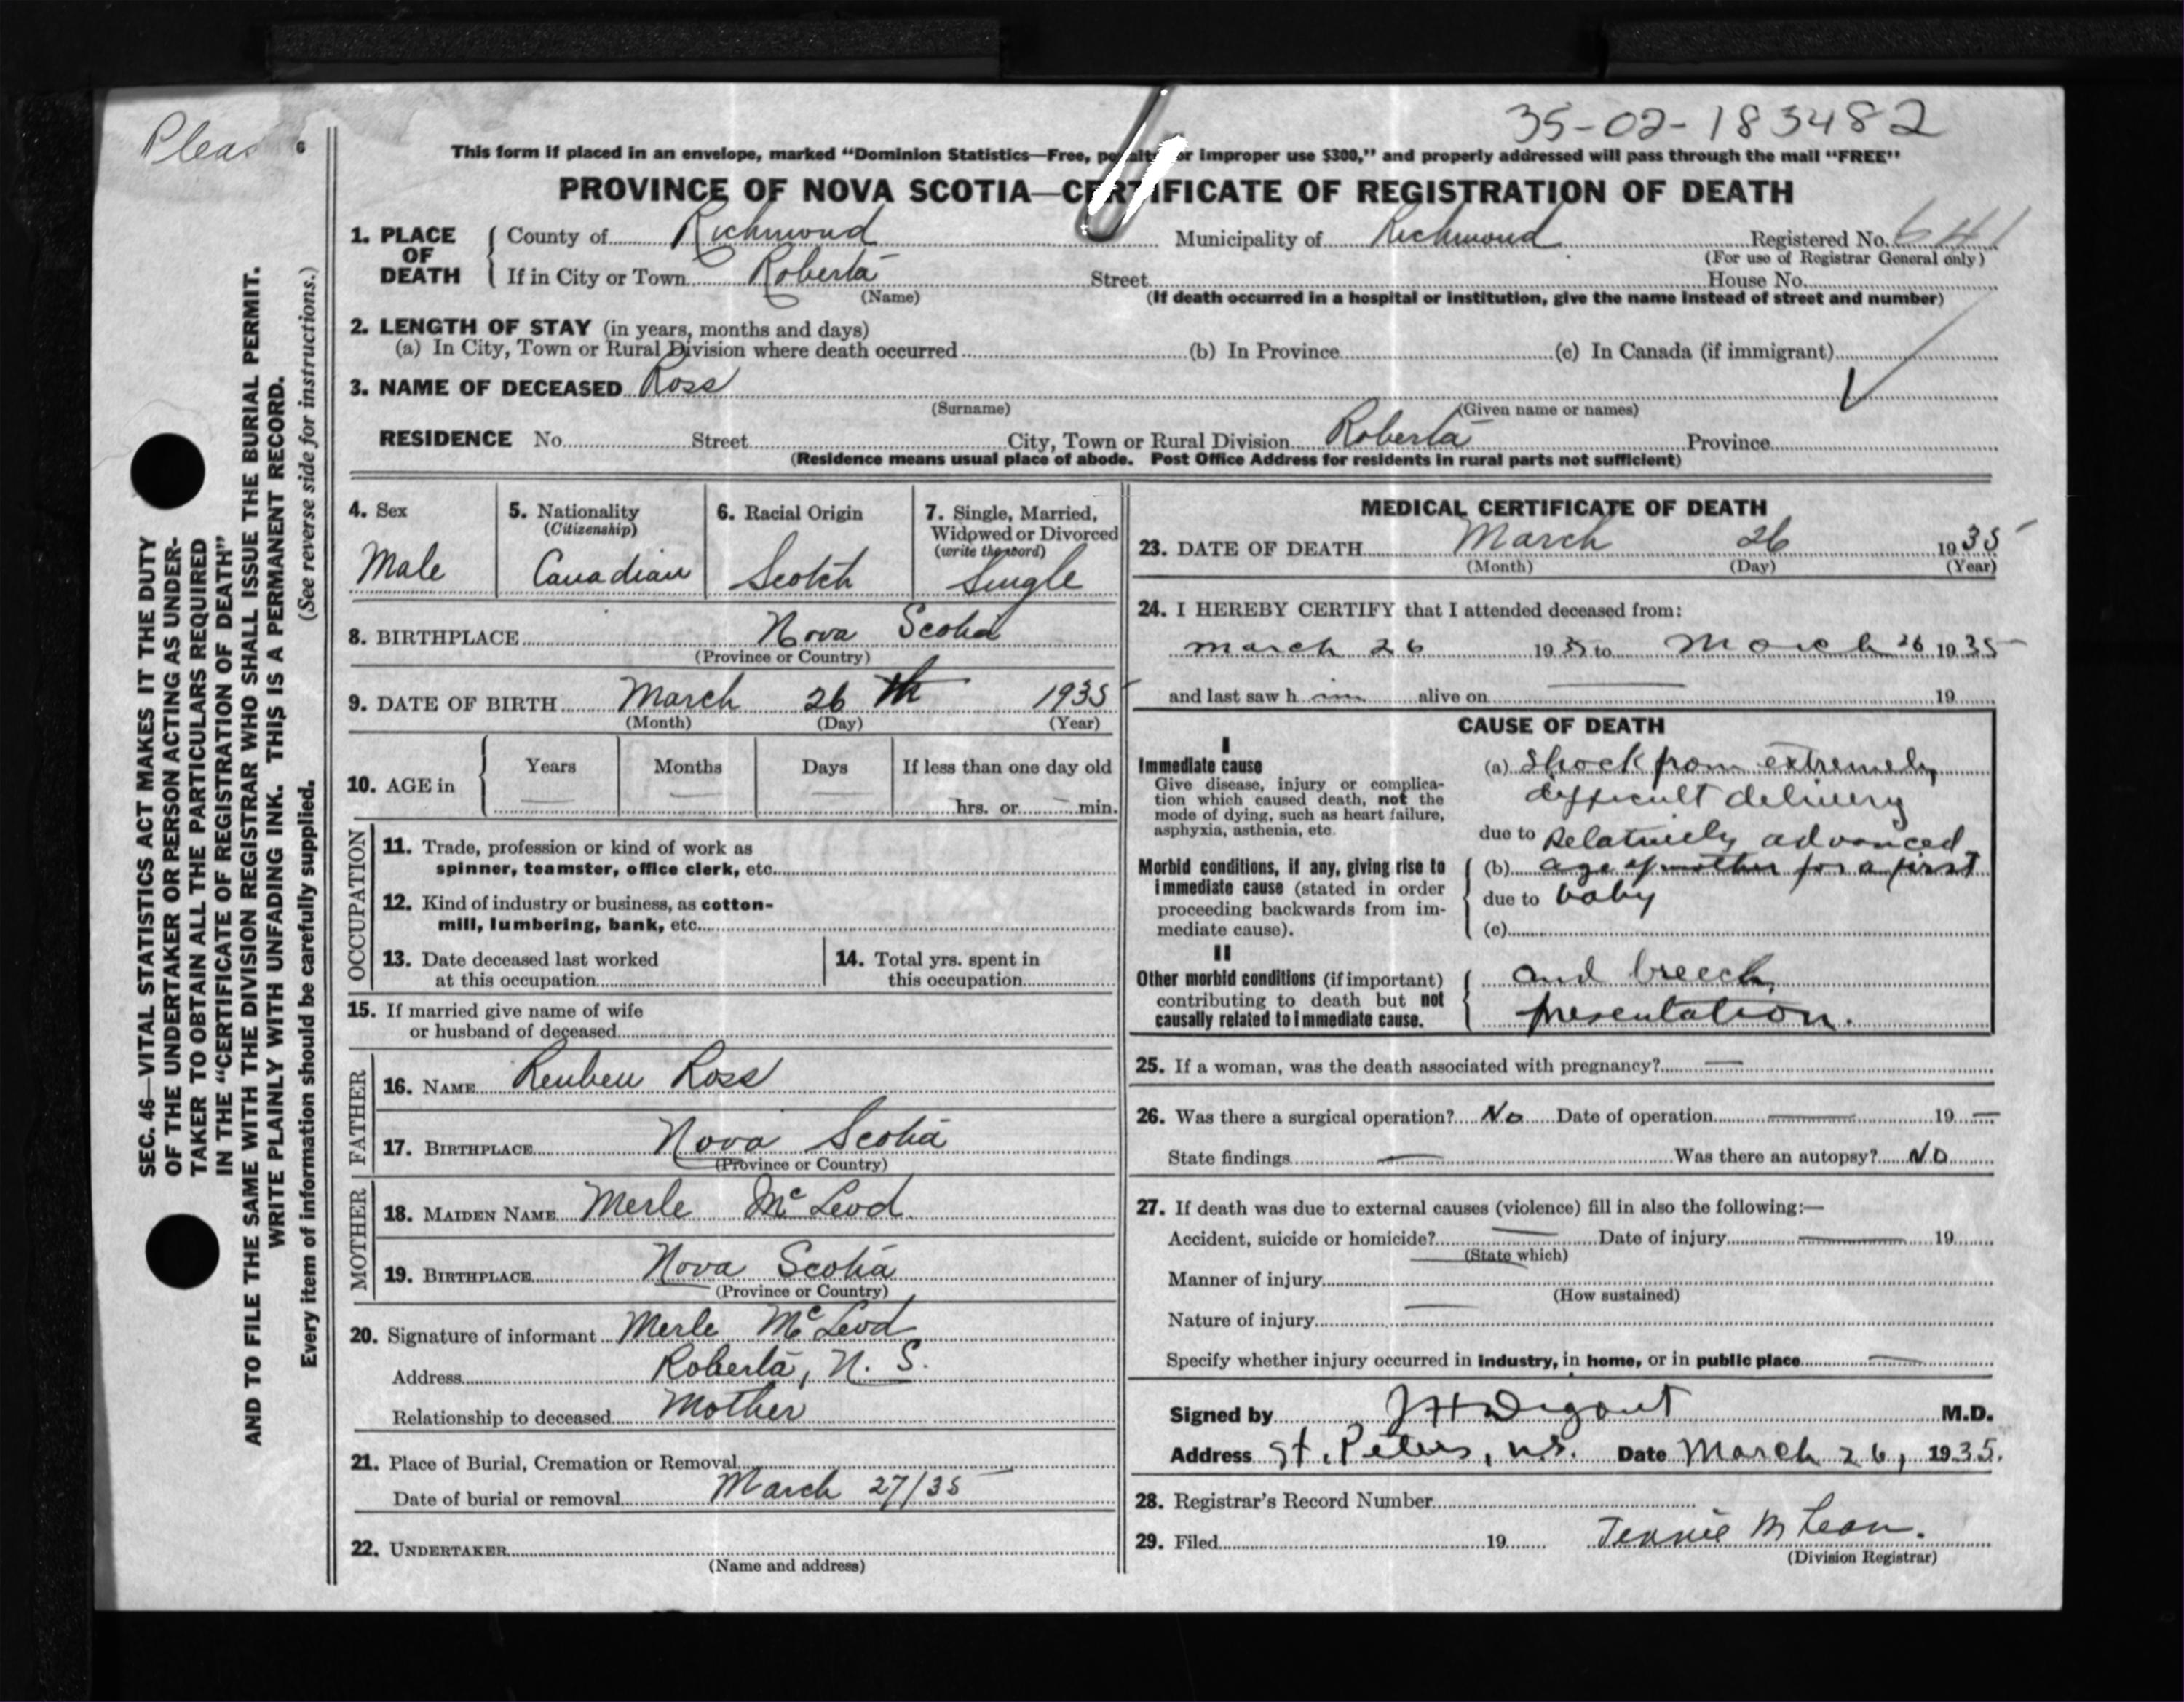 35-02-183482
Pleas
6
This form if placed in an envelope, marked “Dominion Statistics—Free, penalty for improper use $300,” and properly addressed will pass through the mail “FREE”
PROVINCE OF NOVA SCOTIA—CERTIFICATE OF REGISTRATION OF DEATH
1. PLACE OF DEATH County of Richmond Municipality of Richmond Registered No. 641
(For use of Registrar General only)
If in City or Town Roberta Street House No.
(Name) (If death occurred in a hospital or institution, give the name instead of street and number)
2. LENGTH OF STAY (in years, months and days)
(a) In City, Town or Rural Division where death occurred (b) In Province (c) In Canada (if immigrant)
3. NAME OF DECEASED Ross
(Surname) (Given name or names)
RESIDENCE No. Street City, Town or Rural Division Roberta Province
(Residence means usual place of abode. Post Office Address for residents in rural parts not sufficient)
4. Sex
Male
5. Nationality
(Citizenship)
Canadian
6. Racial Origin
Scotch
7. Single, Married,
Widowed or Divorced
(write the word)
Single
8. BIRTHPLACE Nova Scotia
(Province or Country)
9. DATE OF BIRTH March 26th 1935
(Month) (Day) (Year)
10. AGE in Years Months Days If less than one day old
hrs. or min.
OCCUPATION
11. Trade, profession or kind of work as
spinner, teamster, office clerk, etc.
12. Kind of industry or business, as cotton-
mill, lumbering, bank, etc.
13. Date deceased last worked
at this occupation
14. Total yrs. spent in
this occupation
15. If married give name of wife
or husband of deceased
FATHER
16. NAME Reuben Ross
17. BIRTHPLACE Nova Scotia
(Province or Country)
MOTHER
18. MAIDEN NAME Merle McLeod
19. BIRTHPLACE Nova Scotia
(Province or Country)
20. Signature of informant Merle McLeod
Address Roberta, N. S.
Relationship to deceased Mother
21. Place of Burial, Cremation or Removal
Date of burial or removal March 27/35
22. UNDERTAKER
(Name and address)
MEDICAL CERTIFICATE OF DEATH
23. DATE OF DEATH March 26 1935
(Month) (Day) (Year)
24. I HEREBY CERTIFY that I attended deceased from:
March 26 1935 to March 26 1935
and last saw h im alive on 19
CAUSE OF DEATH
I
Immediate cause
Give disease, injury or complica-
tion which caused death, not the
mode of dying, such as heart failure,
asphyxia, asthenia, etc.
(a) Shock from extremely
difficult delivery
due to Relatively advanced
Morbid conditions, if any, giving rise to
immediate cause (stated in order
proceeding backwards from im-
mediate cause).
(b) age of mother for a first
due to baby
(c)
II
Other morbid conditions (if important)
contributing to death but not
causally related to immediate cause.
and breech
presentation.
25. If a woman, was the death associated with pregnancy? —
26. Was there a surgical operation? No Date of operation 19
State findings Was there an autopsy? No
27. If death was due to external causes (violence) fill in also the following:—
Accident, suicide or homicide? Date of injury 19
(State which)
Manner of injury
(How sustained)
Nature of injury
Specify whether injury occurred in industry, in home, or in public place
Signed by M.D.
Address St. Peters, N.S. Date March 26, 1935.
28. Registrar's Record Number
29. Filed 19 Jennie McLean.
(Division Registrar)
SEC. 46—VITAL STATISTICS ACT MAKES IT THE DUTY
OF THE UNDERTAKER OR PERSON ACTING AS UNDER-
TAKER TO OBTAIN ALL THE PARTICULARS REQUIRED
IN THE “CERTIFICATE OF REGISTRATION OF DEATH”
AND TO FILE THE SAME WITH THE DIVISION REGISTRAR WHO SHALL ISSUE THE BURIAL PERMIT.
WRITE PLAINLY WITH UNFADING INK. THIS IS A PERMANENT RECORD.
Every item of information should be carefully supplied. (See reverse side for instructions.)